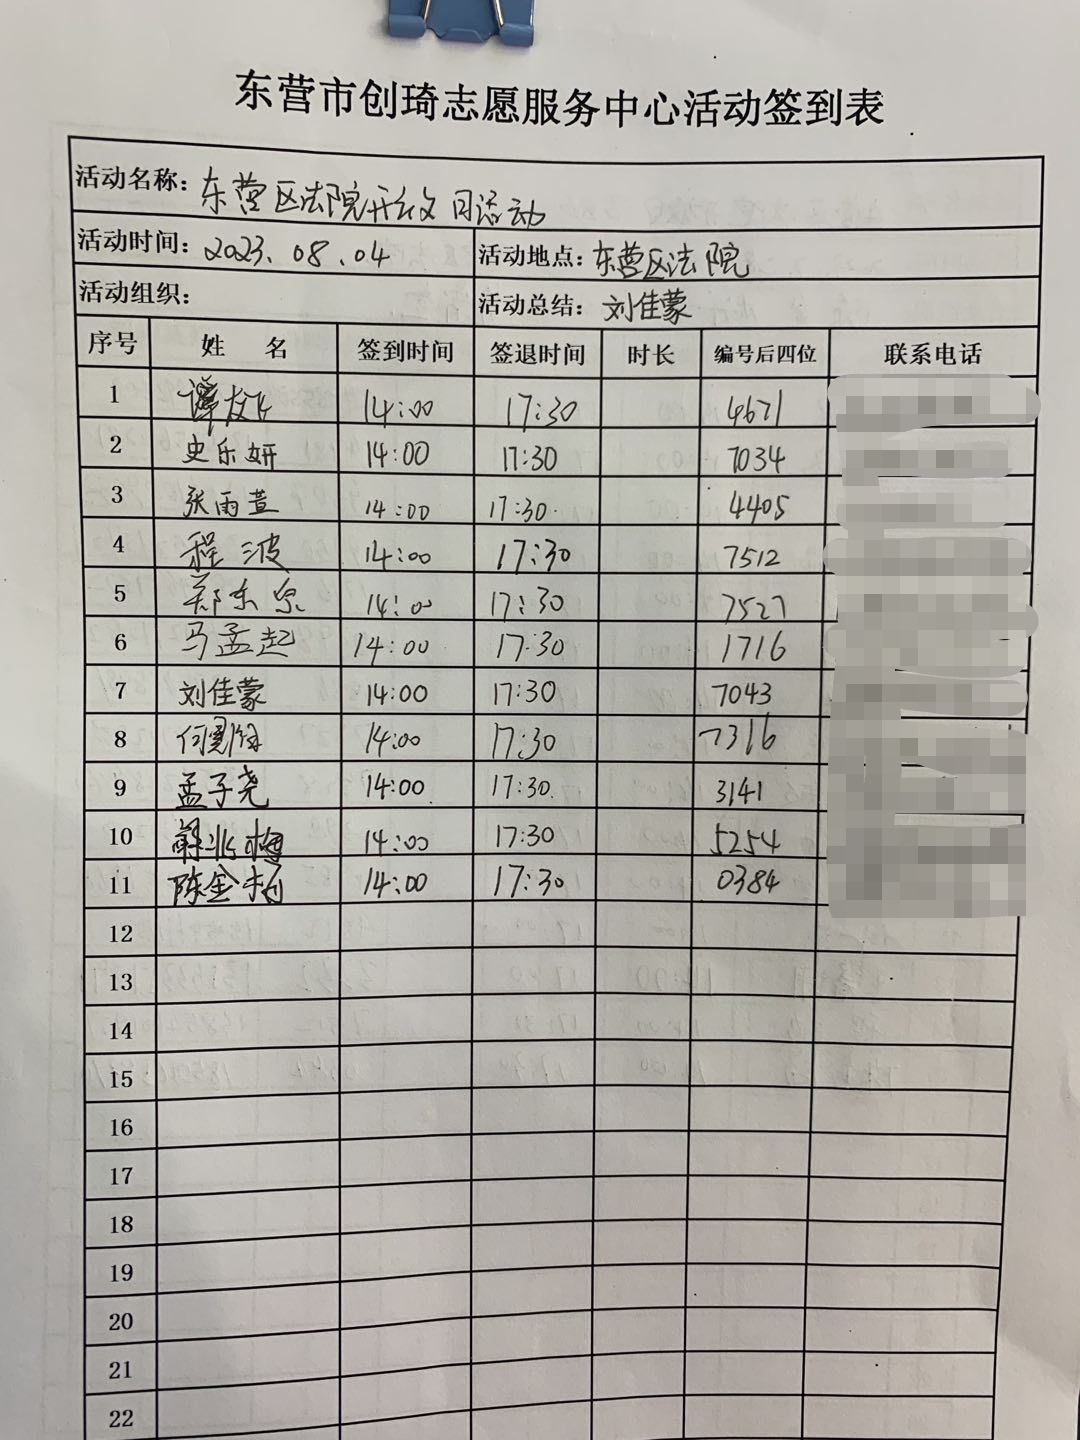 东营市创琦志愿服务中心活动签到表
活动名称: 东营区法院开放日活动
活动时间: 2023.08.04 活动地点: 东营区法院
活动组织: 活动总结: 刘佳蒙
序号 姓 名 签到时间 签退时间 时长 编号后四位 联系电话
1 谭友 14:00 17:30 4671
2 史乐妍 14:00 17:30 7034
3 张雨萱 14:00 17:30 4405
4 程波 14:00 17:30 7512
5 郑东京 14:00 17:30 7527
6 马孟起 14:00 17:30 1716
7 刘佳蒙 14:00 17:30 7043
8 何 14:00 17:30 7316
9 孟子尧 14:00 17:30 3141
10 梅 14:00 17:30 5254
11 陈金 14:00 17:30 0384
12
13
14
15
16
17
18
19
20
21
22